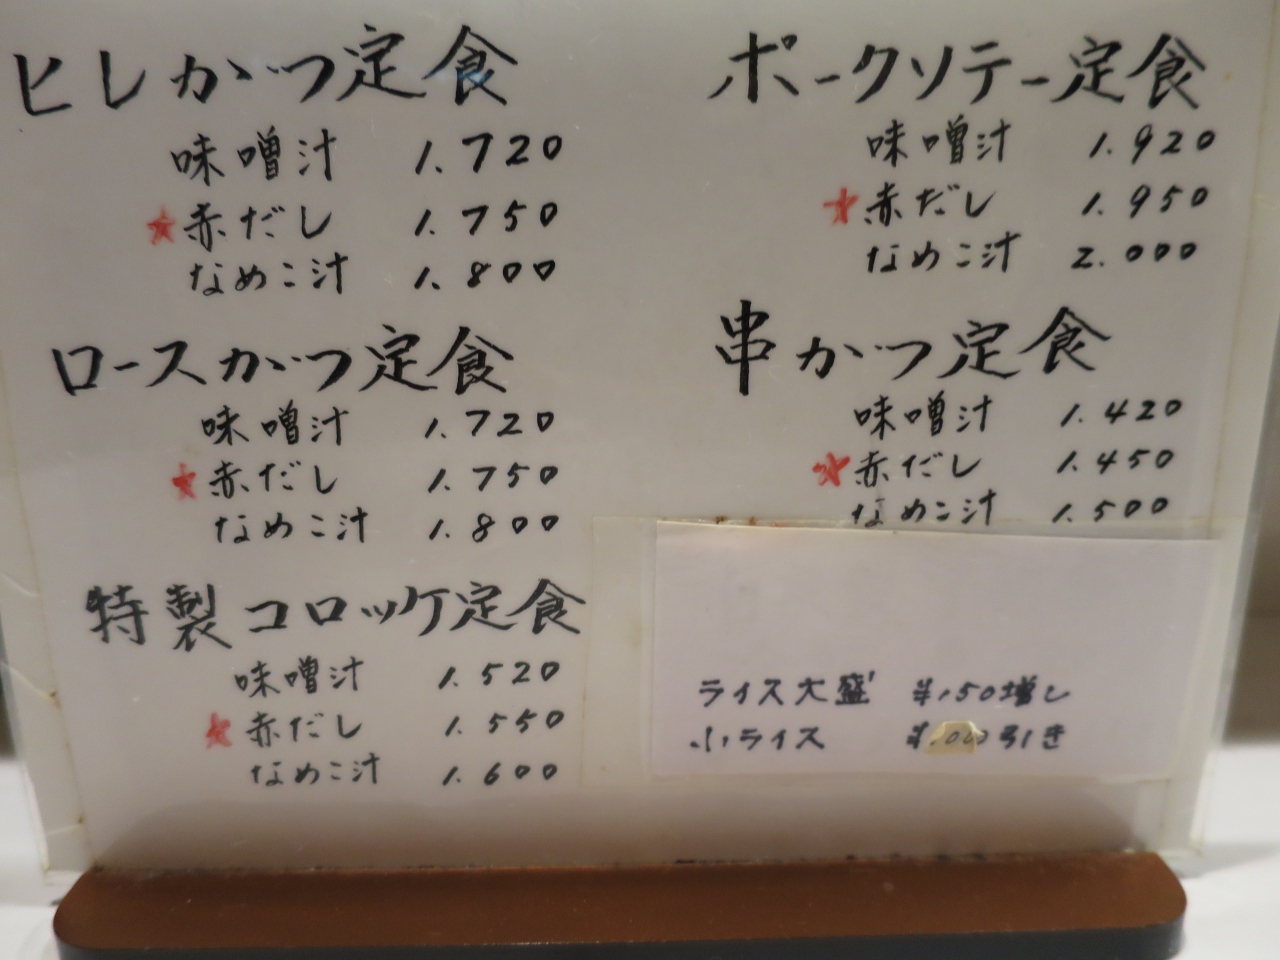 ヒレかつ定食
味噌汁 1.720
★赤だし 1.750
なめこ汁 1.800
ロースかつ定食
味噌汁 1.720
★赤だし 1.750
なめこ汁 1.800
特製コロッケ定食
味噌汁 1.520
★赤だし 1.550
なめこ汁 1.600
ポークソテー定食
味噌汁 1.920
★赤だし 1.950
なめこ汁 2.000
串かつ定食
味噌汁 1.420
★赤だし 1.450
なめこ汁 1.500
ライス大盛 ¥150増し
小ライス 引き